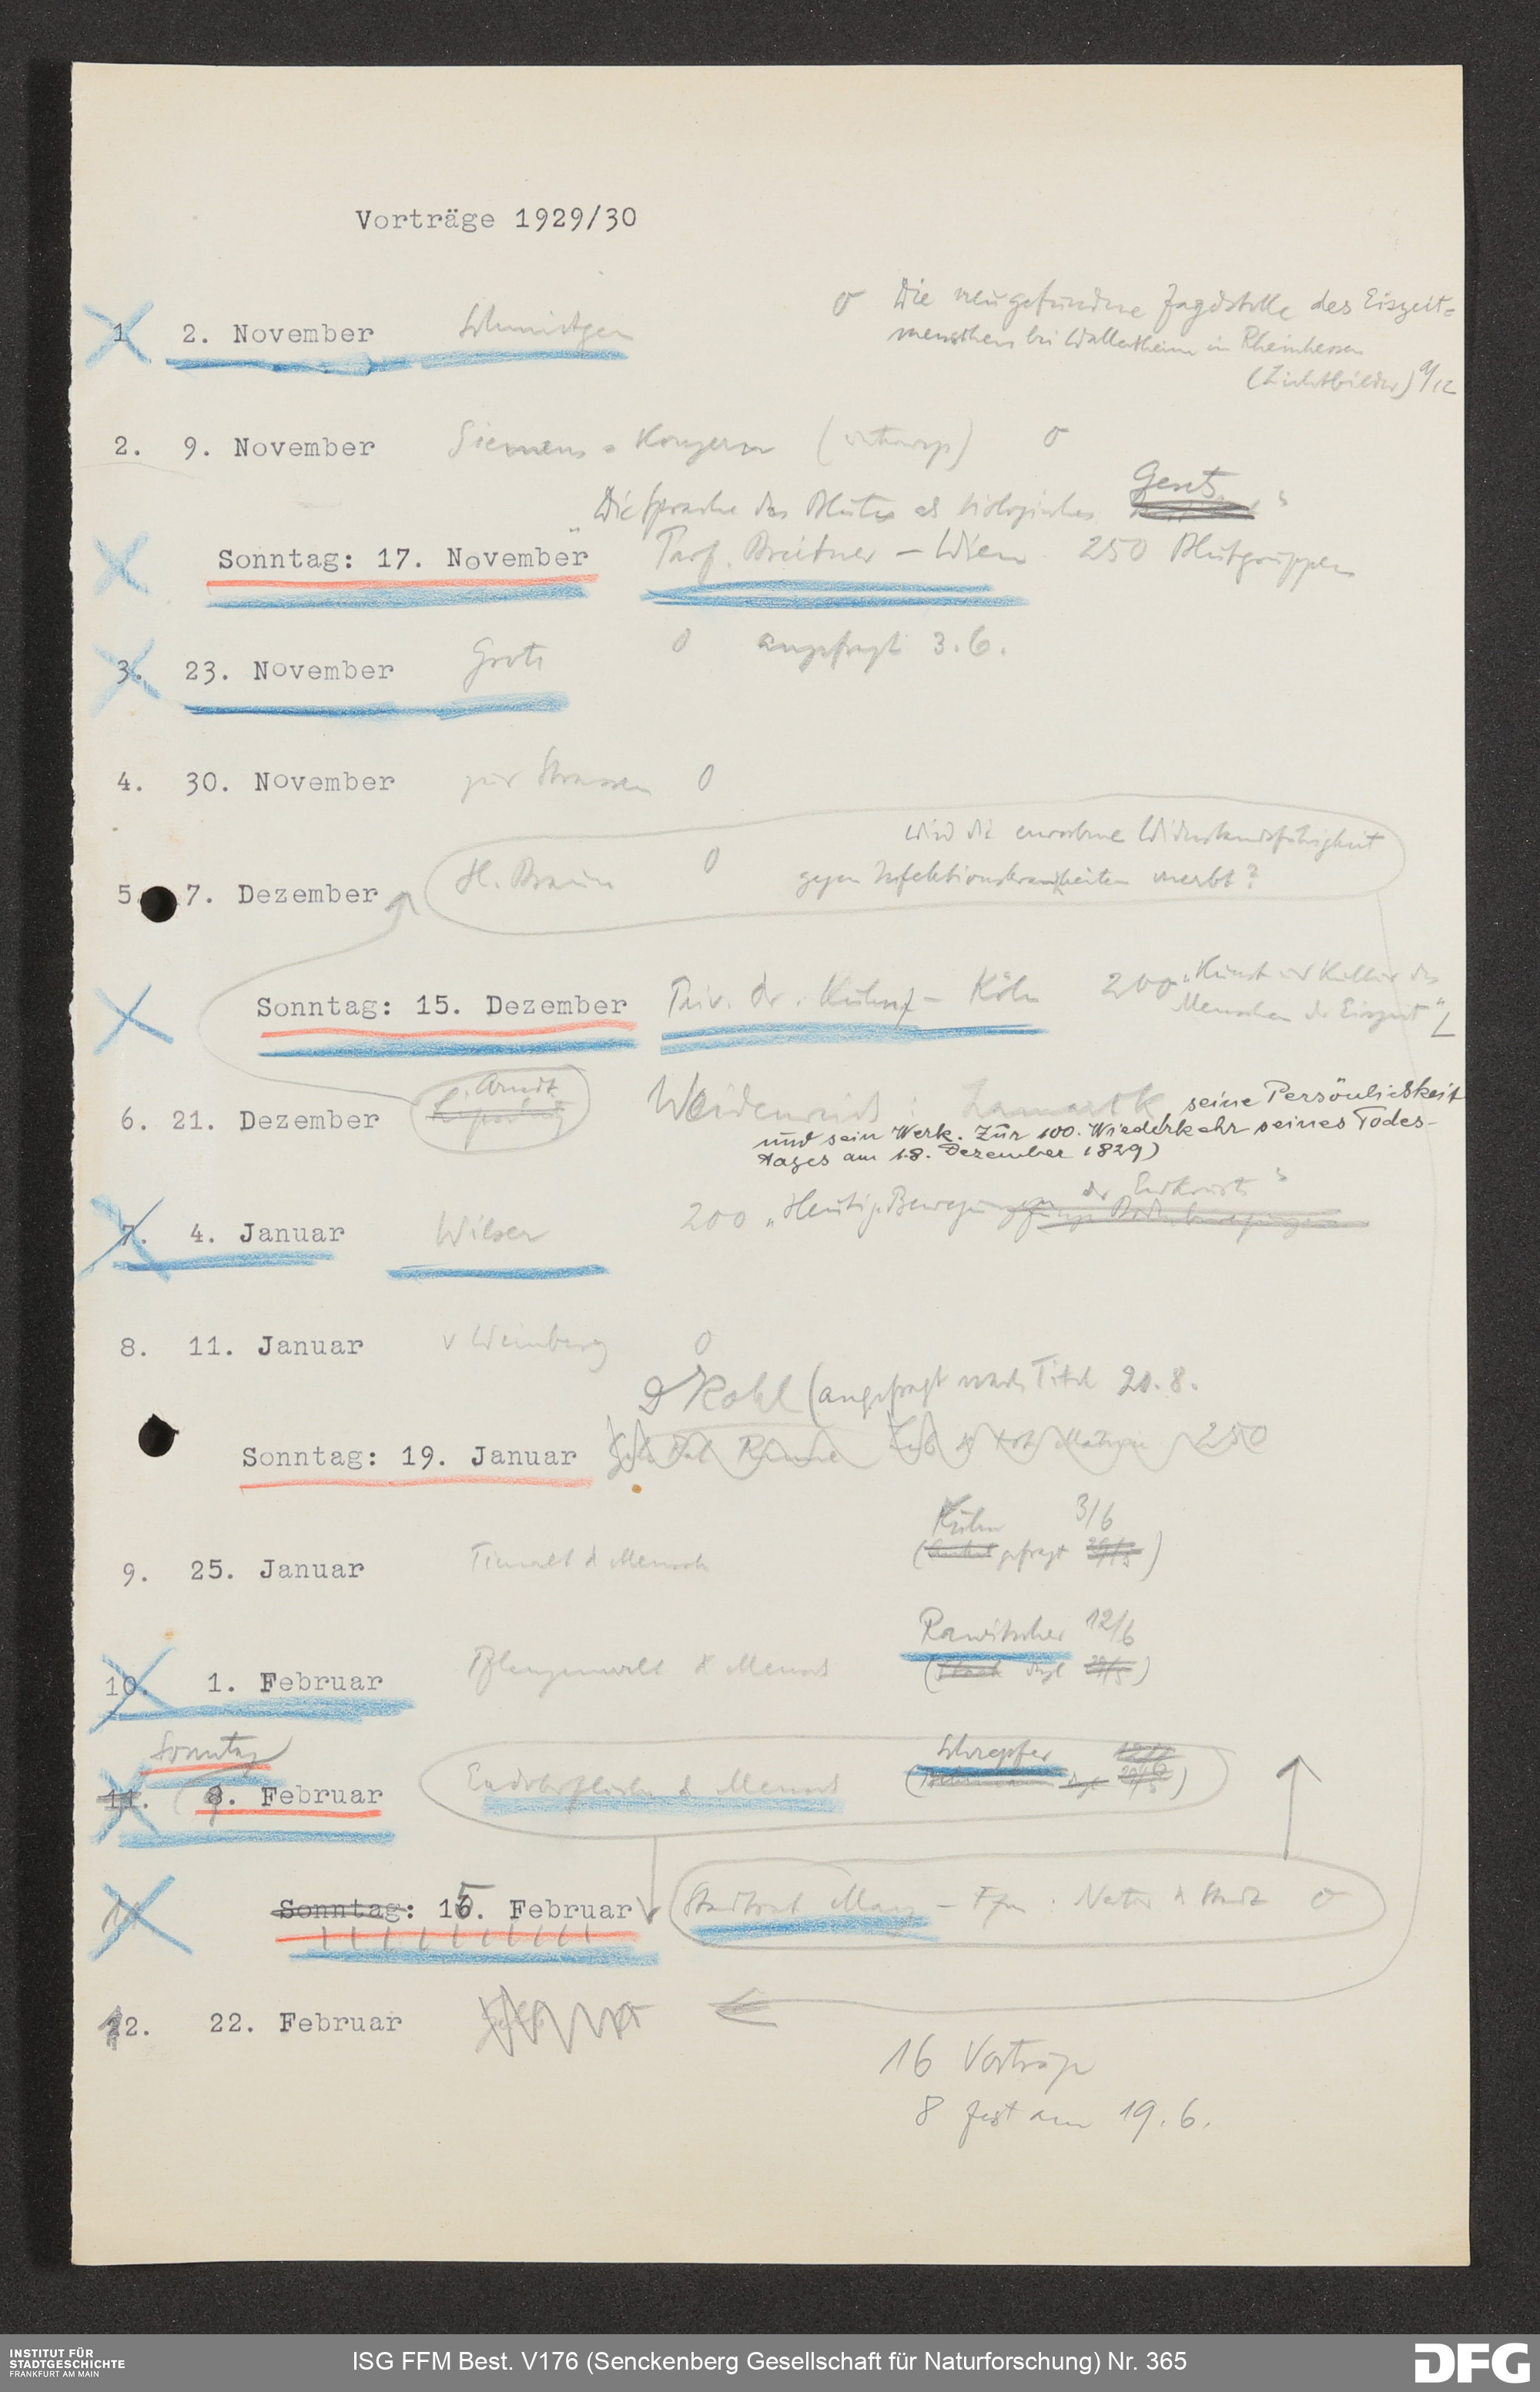 Vorträge 1929/30
1. 2. November Schmidtgen 0 Die neu gefundene Jagdstelle des Eiszeit-
menschen bei Wallertheim in Rheinhessen
(Lichtbilder)
2. 9. November Siemens-Konzern 0
"Die Sprache des Blutes als biologisches Gesetz"
Sonntag: 17. November Prof. Breitner - Wien 250 Blutgruppen
3. 23. November Grote 0 angefragt 3.6.
4. 30. November zur Strassen 0
wird die erworbene Widerstandsfähigkeit
5. 7. Dezember H. Braun 0 gegen Infektionskrankheiten vererbt?
Sonntag: 15. Dezember Priv. Dr. Kühn - Köln 200 "Kunst und Kultur des
Menschen der Eiszeit"
Arndt
6. 21. Dezember Weidenreich: Lamarck seine Persönlichkeit
und sein Werk. Zur 100. Wiederkehr seines Todes-
tages am 18. Dezember 1829)
der Erdkruste"
7. 4. Januar Wilser 200 "Heutige Bewegungen
8. 11. Januar v Weinberg 0
Dr Kohl (angefragt nach Titel 20.8.
Sonntag: 19. Januar 250
Kühn 3/6
9. 25. Januar Tierwelt & Mensch ( gefragt )
Rawitscher 12/6
10. 1. Februar Pflanzenwelt & Mensch
Sonntag Schrepfer
11. 9. Februar Erdoberfläche & Mensch
11 Sonntag: 15. Februar Stadtrat May - Ffm: Natur & Stadt 0
12. 22. Februar
16 Vorträge
8 fest am 19.6.
INSTITUT FÜR
STADTGESCHICHTE
FRANKFURT AM MAIN
ISG FFM Best. V176 (Senckenberg Gesellschaft für Naturforschung) Nr. 365
DFG